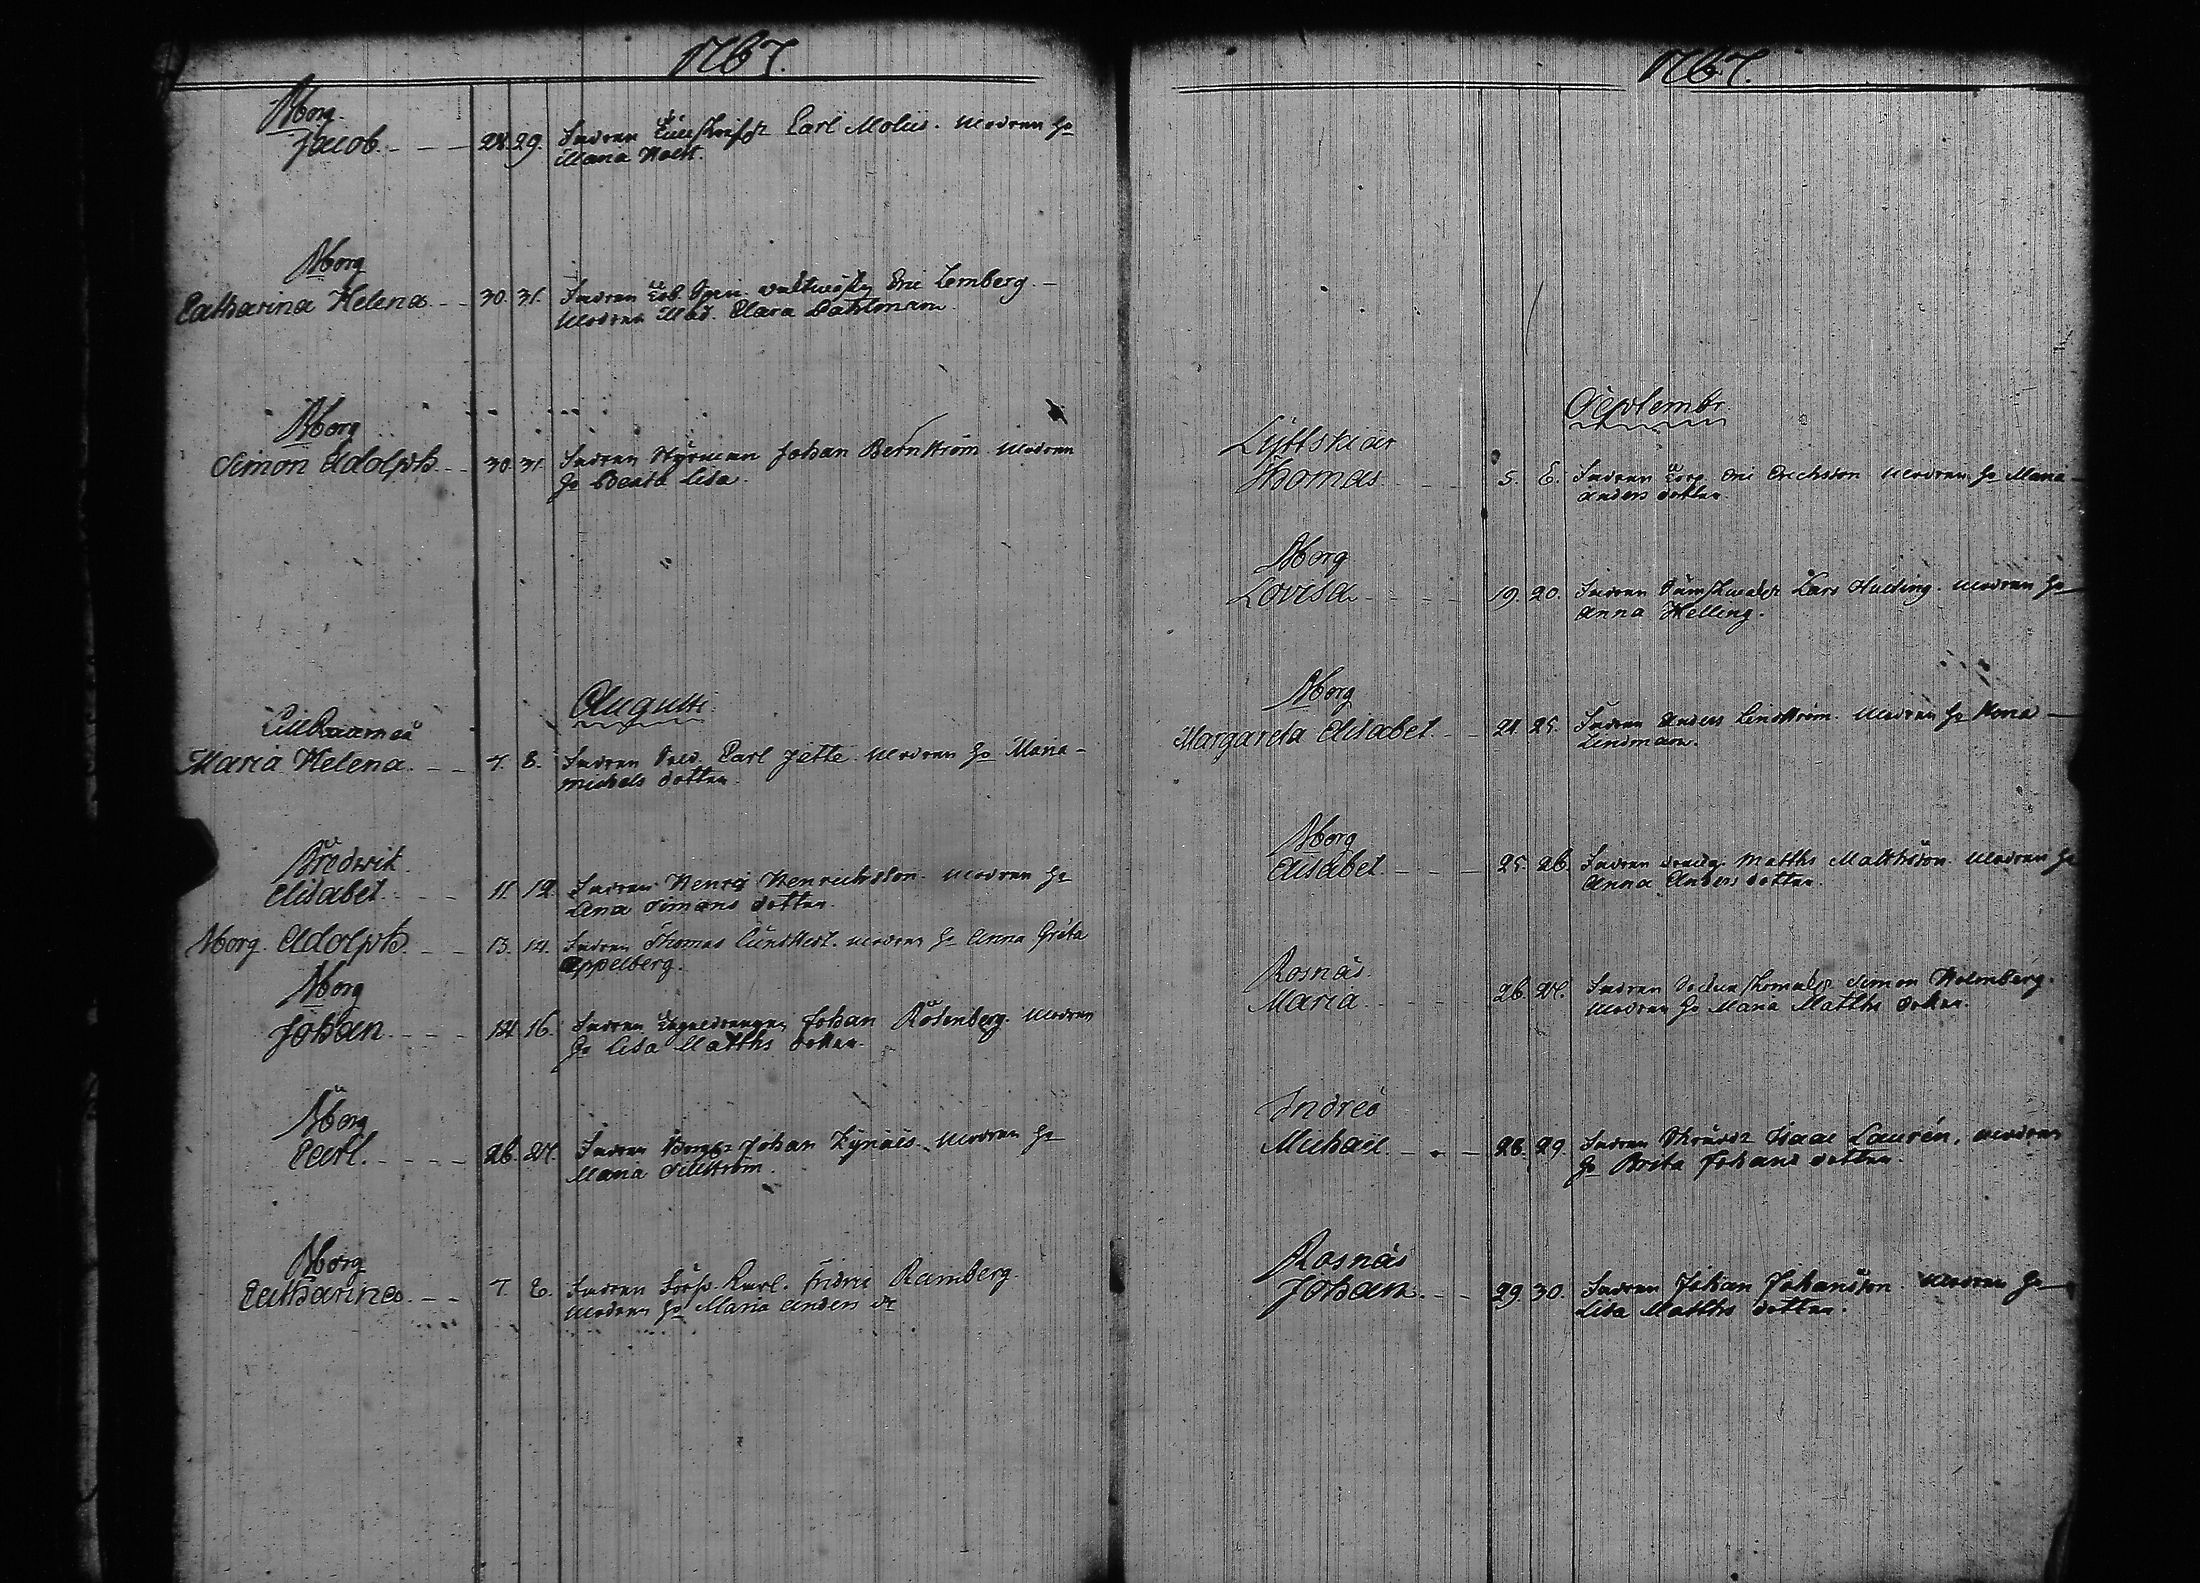 1767.
Nborg.
Jacob. 28. 29. Fadren Carl Moliis. Modren H:o
Maria
Nborg
Catharina Helena 30. 31. Fadren Eric Lemberg.
Modren Mad. Clara Dahlman
Nborg
Simon Adolph. 30. 31. Fadren Styrman Johan Bernström Modren
H:o Beata Lisa.
Augusti
Maria Helena. 7. 8. Fadren Carl Jätte. Modren H:o Maria
Michels dotter.
Bredwik
Elisabet. 11. 12. Fadren Henric Henrichsson. Modren H:o
Lena Simons dotter.
Nborg. Adolph. 13. 14. Fadren Thomas Lundstedt. Modren H:o Anna Greta
Appelberg.
Nborg
Johan. 14. 16. Fadren Johan Rosenberg. Modren
H:o Lisa Matths dotter.
Nborg
Carl. 26. 27. Fadren Borg:n Johan Modren H:o
Maria Sillström.
Nborg
Catharina. 7. 8. Fadren Fridric Ramberg.
Modren H:o Maria Anders dr
1767.
Septembr.
Lyftskiär
Thomas 5. 6. Fadren Corp. Eric Erichsson Modren H:o Maria
Anders dotter.
Nborg
Lovisa 19. 20. Fadren Lars Modren H:o
Anna Helling.
Nborg
Margareta Elisabet. 24. 25. Fadren Anders Lindström. Modren H:o
Lindman.
Nborg
Elisabet 25. 26. Fadren dreng. Matths Mathsson. Modren H:o
Anna Anders dotter.
Rosnäs
Maria 26. 27. Fadren Simon Holmberg.
Modren H:o Maria Matths dotter.
Michaël 28. 29. Fadren Isaac Laurén, Modren
H:o Brita Johans dotter.
Rosnäs
Johan. 29. 30. Fadren Johan Johansson. Modren H:o
Lisa Matths dotter.